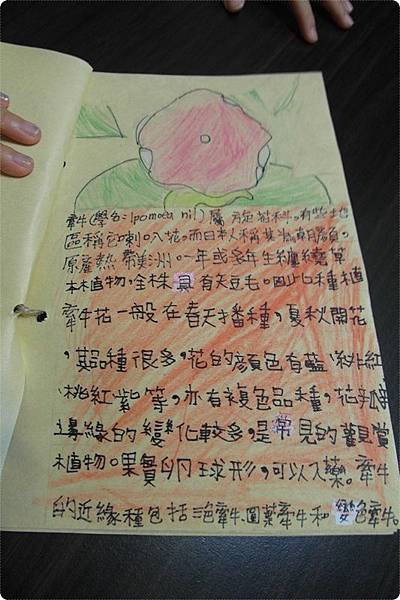 牽牛(學名:Ipomoea nil)屬旋花科。有些地
區稱它喇叭花。而日本人稱其為朝顏。
原產熱帶美洲。一年或多年生纏繞草
本植物。全株具有短毛。因此種植
牽牛花一般在春天播種,夏秋開花
,其品種很多,花的顏色有藍、緋紅
、桃紅、紫等,亦有複色品種,花瓣
邊緣的變化較多,是常見的觀賞
植物。果實卵球形,可以入藥。牽牛
的近緣種包括 牽牛、圓葉牽牛和變色牽牛。